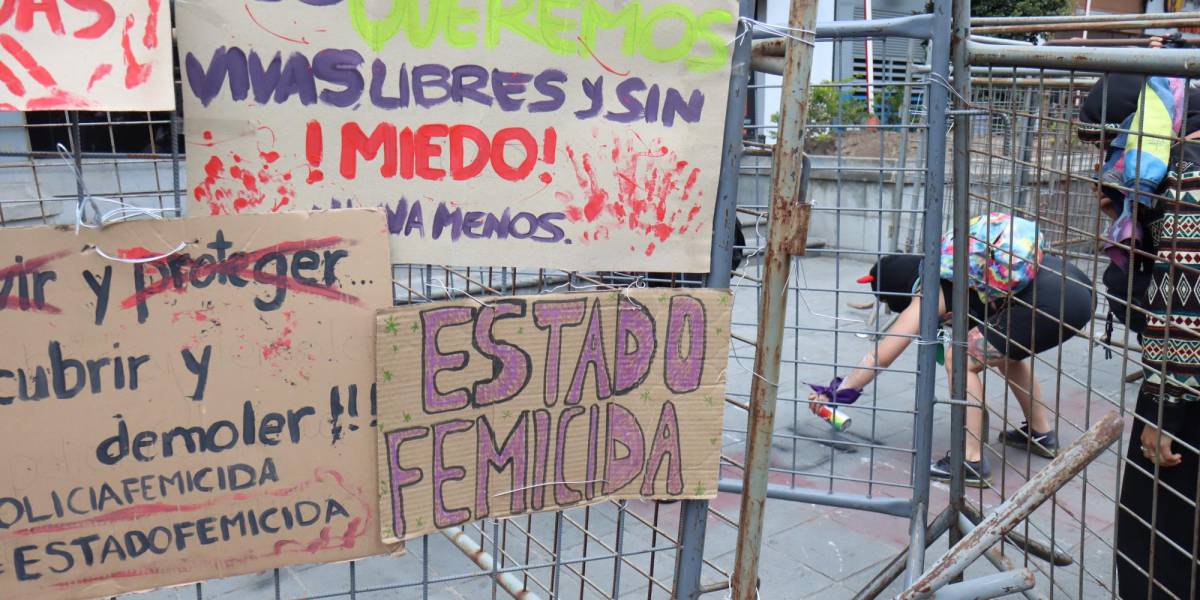 DAS
QUEREMOS
VIVAS LIBRES Y SIN
¡MIEDO!
MENOS.
vir y proteger...
cubrir y
demoler!!!
OLICIAFEMICIDA
#ESTADOFEMICIDA
ESTADO
FEMICIDA